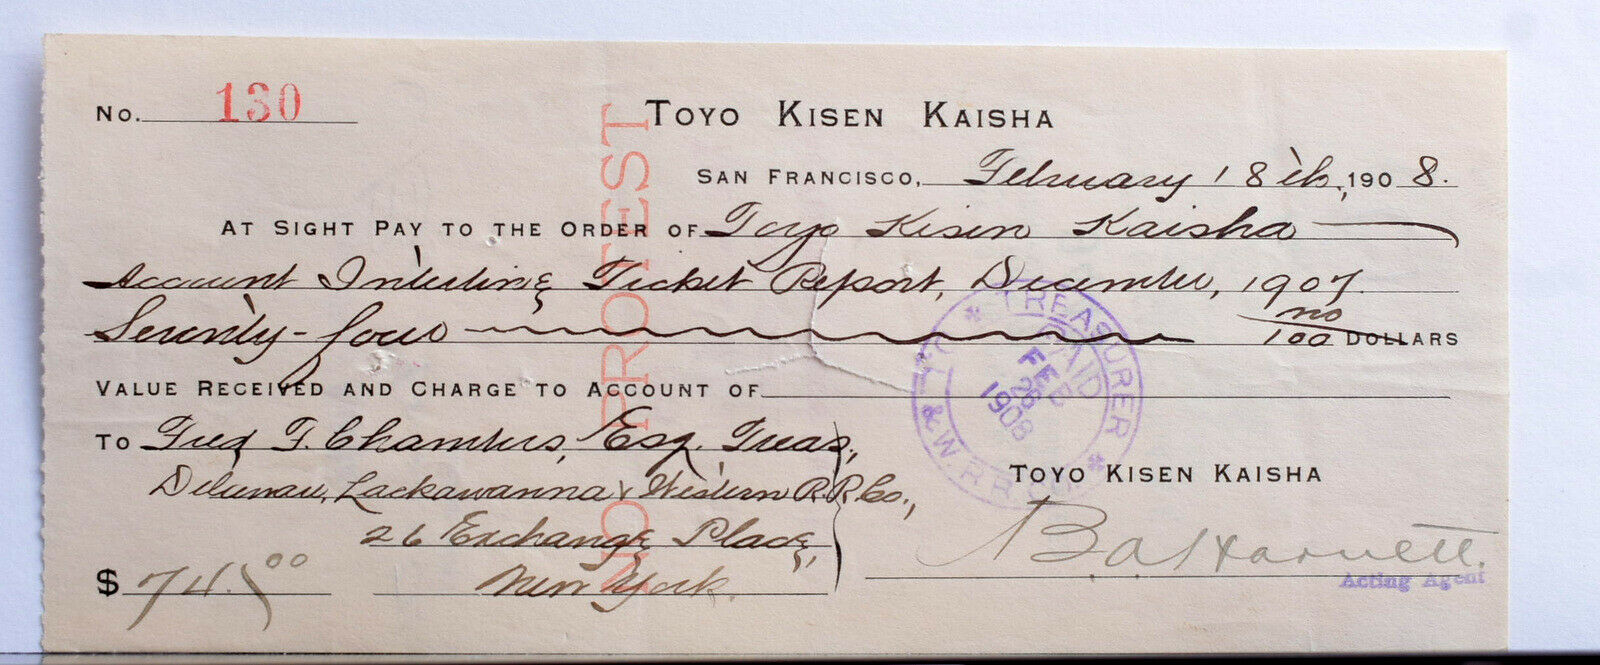 No. 130
TOYO KISEN KAISHA
SAN FRANCISCO, February 18th, 1908.
AT SIGHT PAY TO THE ORDER OF Toyo Kisen Kaisha
Account Interline Ticket Report, December, 1907.
Seventy-four no/100 DOLLARS
VALUE RECEIVED AND CHARGE TO ACCOUNT OF
TO Fred F. Chambers, Esq. Treas,
Delawau, Lackawanna & Western R.R. Co.,
26 Exchange Place,
New York.
$ 74.00
TOYO KISEN KAISHA
Acting Agent
NO PROTEST
TREASURER
PAID
FEB
26
1908
& W. R R